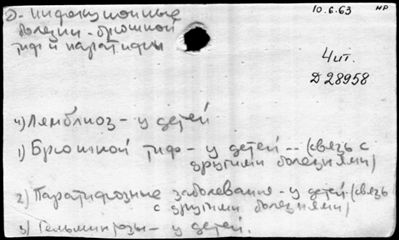 Д- Инфекционные
болезни - брюшной
тиф и паратифы
10.6.63 НР
4 чт.
Д 28958
4) Лямблиоз - у детей
1) Брюшной тиф - у детей -- (связь с
другими болезнями)
2) Паратифозные заболевания - у детей (связь
с другими болезнями)
3) Гельминтозы - у детей.